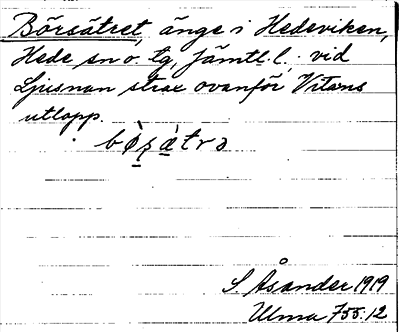 Börsätret, änge i Hedeviken,
Hede sn o. tg, Jämtl. l., vid
Ljusnan strax ovanför Vitans
utlopp.
S Åsander 1919
Ulma 755:12